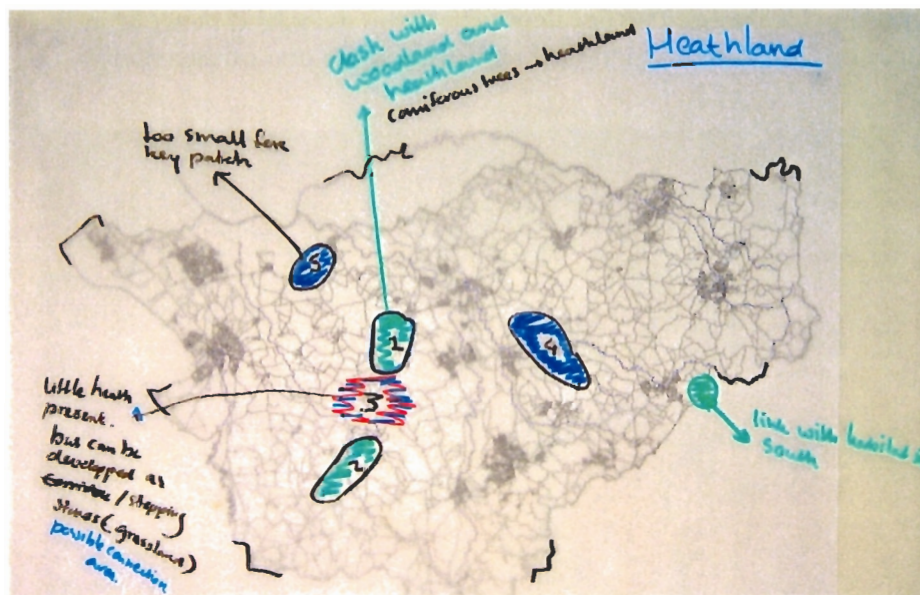 Heathland
clash with
woodland and
heathland
coniferous trees → heathland
too small for
key patch
5
1
4
3
2
Little heath
present.
but can be
developped as
corridor / stepping
stones (grassland)
possible connection
area.
link with
south